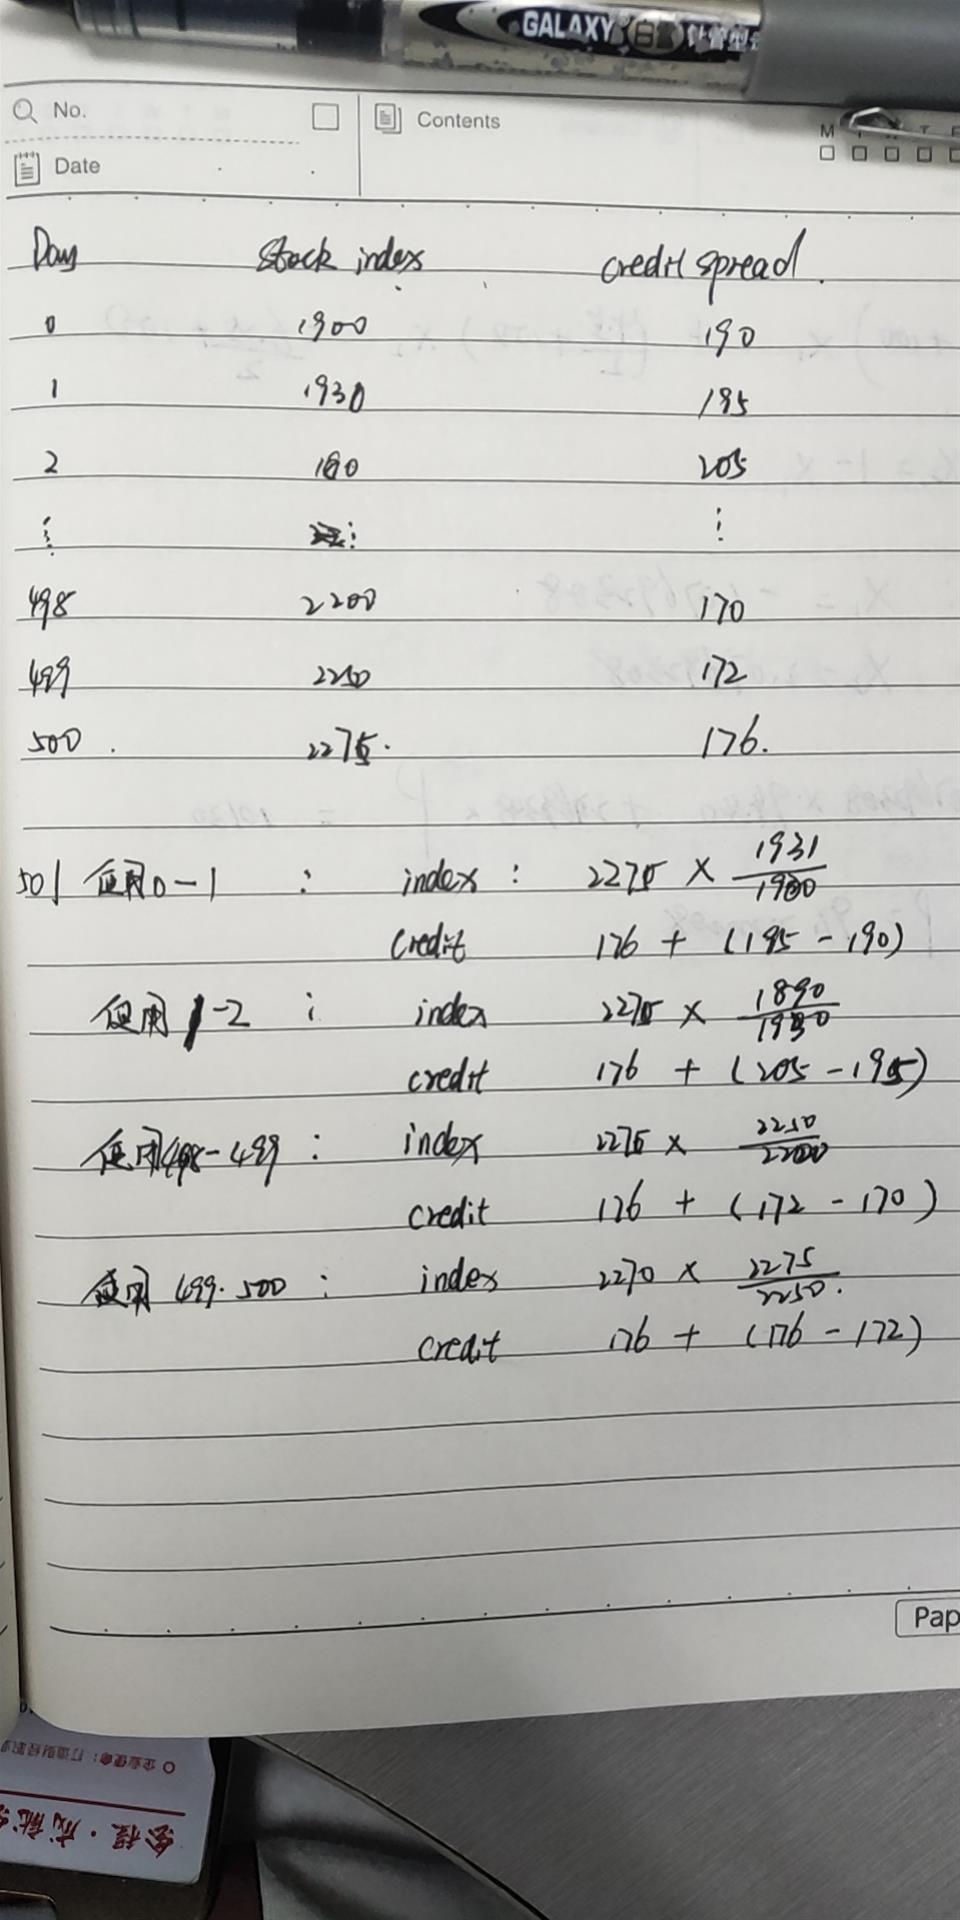 GALAXY 白金 针管型
No.
Contents
M T F
Date
Day stock index credit spread.
0 1900 190
1 1930 195
2 180 205
⋮ ⋮ ⋮
498 2200 170
499 2250 172
500. 2275. 176.
501 使用0-1 : index : 2275 × 1931/1900
credit 176 + (195-190)
使用1-2 : index 2275 × 1890/1930
credit 176 + (205-195)
使用498-499 : index 2275 × 2250/2200
credit 176 + (172-170)
使用 499.500 : index 2270 × 2275/2250.
credit 176 + (176-172)
Pap
企业使命：打造财经职业
金程·成就